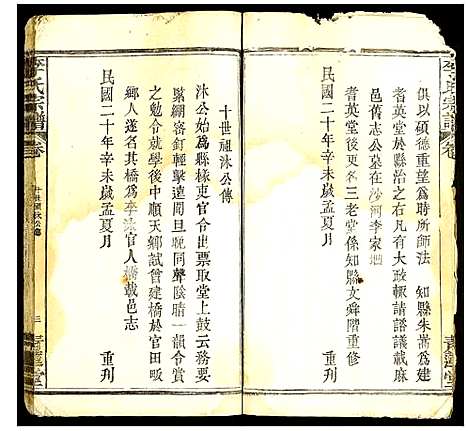 李氏宗譜 卷
俱以碩德重望爲時所師法 知縣朱嵩爲建
耆英堂於縣治之右凡有大政輒請諮議載麻
邑舊志公墓在沙河李家
耆英堂後更名三老堂係知縣文舜階重修
民國二十年辛未歲孟夏月 重刊
青蓮堂
十世祖沐公傳
沐公始爲縣椽吏官令出票取堂上鼓云務要
緊綳密釘輕擊遠聞旦晩同聲陰晴一韻令賞
之勉令就學後中順天鄉試曾建橋於官田畈
鄉人遂名其橋爲李沐官人橋載邑志
民國二十年辛未歲孟夏月 重刊
李氏宗譜 卷
十世祖沐公傳
三
青蓮堂